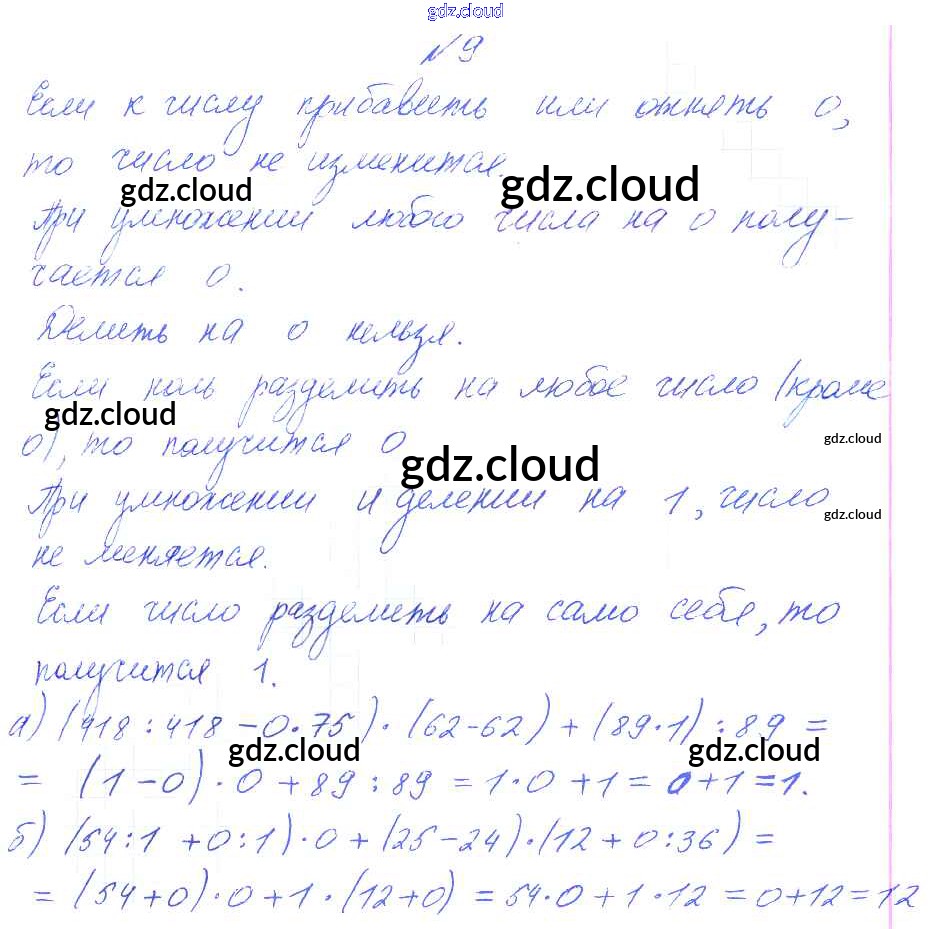 gdz.cloud
№ 9
Если к числу прибавить или отнять 0,
то число не изменится.
gdz.cloud
gdz.cloud
При умножении любого числа на 0 полу-
чается 0.
Делить на 0 нельзя.
Если ноль разделить на любое число (кроме
gdz.cloud
0), то получится 0
gdz.cloud
gdz.cloud
При умножении и делении на 1, число
gdz.cloud
не меняется.
Если число разделить на само себя, то
получится 1.
а) (418 : 418 - 0 · 75) · (62 - 62) + (89 · 1) : 89 =
gdz.cloud
gdz.cloud
= (1 - 0) · 0 + 89 : 89 = 1 · 0 + 1 = 0 + 1 = 1.
б) (54 : 1 + 0 : 1) · 0 + (25 - 24) · (12 + 0 : 36) =
= (54 + 0) · 0 + 1 · (12 + 0) = 54 · 0 + 1 · 12 = 0 + 12 = 12